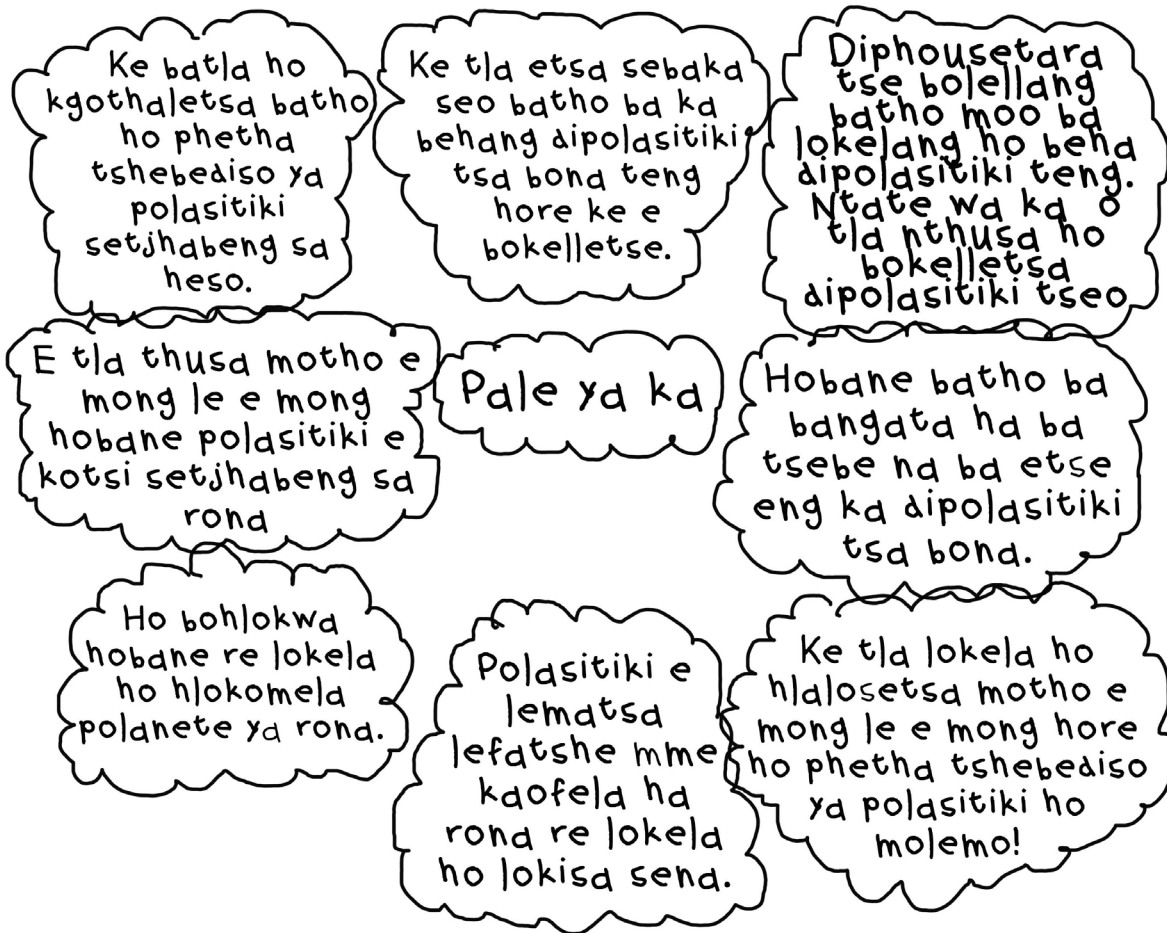 Ke batla ho
kgothaletsa batho
ho phetha
tshebediso ya
polasitiki
setjhabeng sa
heso.
Ke tla etsa sebaka
seo batho ba ka
behang dipolasitiki
tsa bona teng
hore ke e
bokelletse.
Diphousetara
tse bolellang
batho moo ba
lokelang ho beha
dipolasitiki teng.
Ntate wa ka o
tla nthusa ho
bokelletsa
dipolasitiki tseo
E tla thusa motho e
mong le e mong
hobane polasitiki e
kotsi setjhabeng sa
rona
Pale ya ka
Hobane batho ba
bangata ha ba
tsebe na ba etse
eng ka dipolasitiki
tsa bona.
Ho bohlokwa
hobane re lokela
ho hlokomela
polanete ya rona.
Polasitiki e
lematsa
lefatshe mme
kaofela ha
rona re lokela
ho lokisa sena.
Ke tla lokela ho
hlalosetsa motho e
mong le e mong hore
ho phetha tshebediso
ya polasitiki ho
molemo!